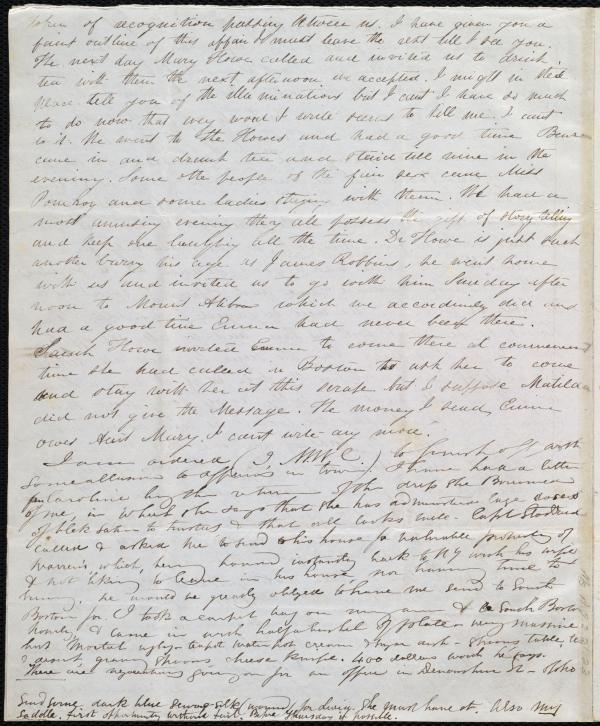 token of recognition passing between us. I have given you a
faint outline of this affair & must leave the rest till I see you.
The next day Mary Howe called and invited us to drink
tea with them the next afternoon we accepted. I might in this
place tell you of the illuminations but I cant I have so much
to do now that every word I write seems to kill me. I cant
do it. We went to the Howes and had a good time
came in and drank tea and staid till nine in the
evening. Some other people of the fair sex came Miss
Pomroy and some ladies staying with them. We had a
most amusing evening they all possess the gift of story telling
and keep one laughing all the time. Dr Howe is just such
another being his age as James Robbins, he went home
with us and invited us to go with him Sunday after
noon to Mount Auburn which we accordingly did and
had a good time Emma had never been there.
Sarah Howe invited Emma to come there at commencement
time she had called in Boston to ask her to come
and stay with her at this scrape but I suppose Matilda
did not give the Message. The money I send, Emma
owes Aunt Mary, I cant write any more.
I am ordered (I, MWC.) to furnish off with
Some allusion to affairs in town. I have had a letter
fm Caroline by the return of the dress the Brunswick
of me, in which she says that she has administered large doses
of blck satin to trustees & that all looks well. Capt Stoddard
called & asked me to send to his house for valuable property of
Warren's, which, being hurried instantly back to NY with his wife
& not liking to leave in his house, nor having time to
bring, he would be greatly obliged to have me send to South
Boston for. I took a carpet bag on my arm & the South Boston
hourly, & came in with half a bushel of plate - very massive
but mortal ugly - teapot water pot cream & sugar dish - spoons table, tea
& desert gravy spoons cheese knife. 400 dollars worth he says.
There are negociations going on for an office in Devonshire St -
Send some dark blue sewing silk (wound) for divers. She must have it. Also my
Saddle. first opportunity without fail. Before Thursday if possible.